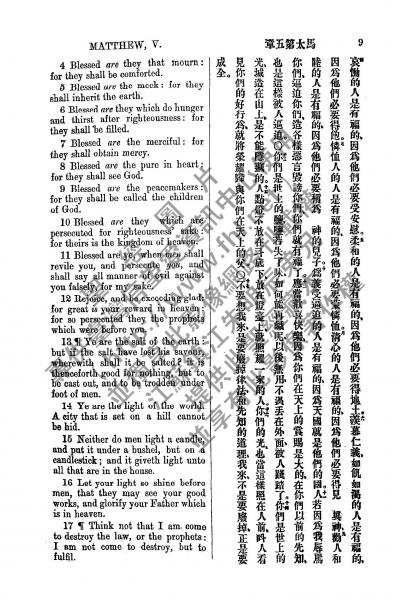 MATTHEW, V.
馬太第五章
9
4 Blessed are they that mourn:
for they shall be comforted.
5 Blessed are the meek: for they
shall inherit the earth.
6 Blessed are they which do hunger
and thirst after righteousness: for
they shall be filled.
7 Blessed are the merciful: for
they shall obtain mercy.
8 Blessed are the pure in heart:
for they shall see God.
9 Blessed are the peacemakers:
for they shall be called the children
of God.
10 Blessed are they which are
persecuted for righteousness' sake:
for theirs is the kingdom of heaven.
11 Blessed are ye, when men shall
revile you, and persecute you, and
shall say all manner of evil against
you falsely, for my sake.
12 Rejoice, and be exceeding glad:
for great is your reward in heaven:
for so persecuted they the prophets
which were before you.
13 ¶ Ye are the salt of the earth:
but if the salt have lost his savour,
wherewith shall it be salted? it is
thenceforth good for nothing, but to
be cast out, and to be trodden under
foot of men.
14 Ye are the light of the world.
A city that is set on a hill cannot
be hid.
15 Neither do men light a candle,
and put it under a bushel, but on a
candlestick; and it giveth light unto
all that are in the house.
16 Let your light so shine before
men, that they may see your good
works, and glorify your Father which
is in heaven.
17 ¶ Think not that I am come
to destroy the law, or the prophets:
I am not come to destroy, but to
fulfil.
哀慟的人是有福的、因爲他們必要受安慰柔和的人是有福的、因爲他們必要得地土羨慕仁義如飢如渴的人是有福的、
因爲他們必要得飽憐恤人的人是有福的、因爲他們必要蒙憐恤清心的人是有福的、因爲他們必要得見 眞神勸人和
睦的人是有福的、因爲他們必要稱爲 神的兒子爲義受逼迫的人是有福的、因爲天國就是他們的國人若因爲我辱罵
你們、逼迫你們、造各樣惡言毀謗你們、你們就有福了應當歡喜快樂因爲你們在天上的賞賜是大的、在你們以前的先知、
也是這樣被人逼迫○你們是世上的鹽鹽若失了味、如何能再鹹呢以後無用、不過丟在外面、被人踐踏了你們是世上的
光城造在山上、是不能隱藏的人點燈不放在斗底下、放在燈臺上就照耀一家的人你們的光也當這樣照在人前、叫人看
見你們的好行爲、就將榮耀歸與你們在天上的父○不要想我來是要廢掉律法和先知的道理我來不是要廢掉、正是要
成全。